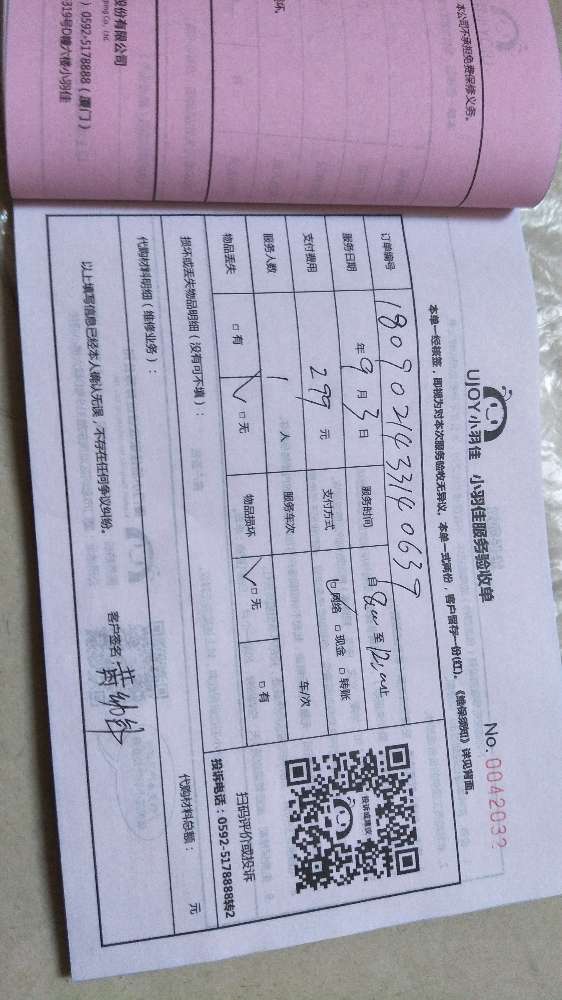 本公司不承担免费保修义务。
坏.
股份有限公司
ping Co., Ltd.
) 0592-5178888 ( 厦门 )
319号D幢六楼小羽佳
UJOY小羽佳 小羽佳服务验收单
No. 0042032
本单一经核签，即视为对本次服务验收无异议。本单一式两份，客户留存一份(红)。《维保须知》详见背面。
订单编号 1809021433140637
服务日期 年 9 月 3 日 服务时间 自 8:00 至 12:00 止
支付费用 299 元 支付方式 □ 网络 □ 现金 □ 转账
服务人数 1 人 服务车次 车/次
物品丢失 □ 有 □ 无 物品损坏 □ 无 □ 有
投诉或建议
扫码评价或投诉
投诉电话：0592-5178888转2
损坏或丢失物品明细（没有可不填）：
代购材料明细（维修业务）： 代购材料总额： 元
以上填写信息已经本人确认无误，不存在任何争议纠纷。
客户签名: